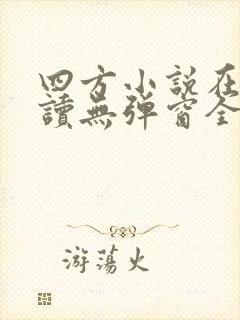 四方小説在
讀無弹窗全
游蕩火